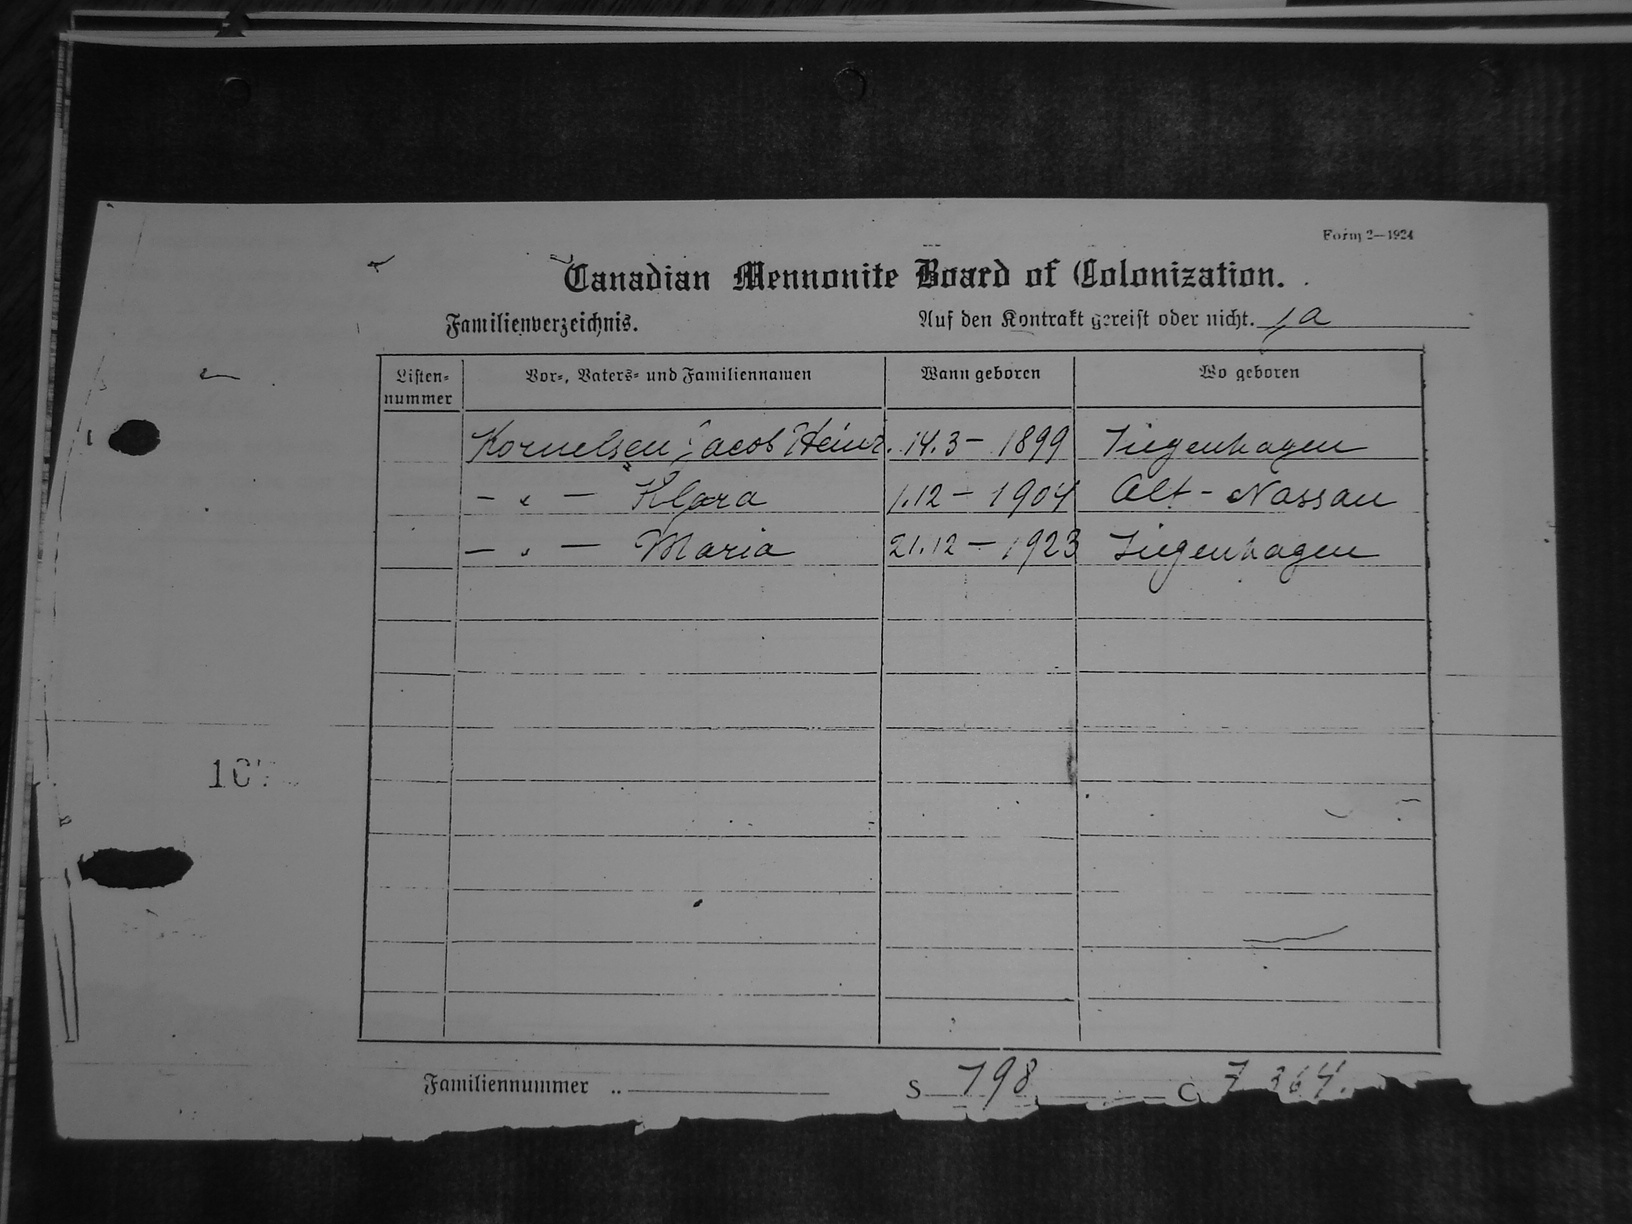 Form 2—1924
Canadian Mennonite Board of Colonization.
Familienverzeichnis. Auf den Kontrakt gereist oder nicht. ja
Listen-nummer Vor-, Vaters- und Familiennamen Wann geboren Wo geboren
Kornelsen Jacob Heinr. 14.3 - 1899 Tiegenhagen
- " - Klara 1.12 - 1904 Alt-Nassau
- " - Maria 21.12 - 1923 Tiegenhagen
Familiennummer .. S 798 C 7364.